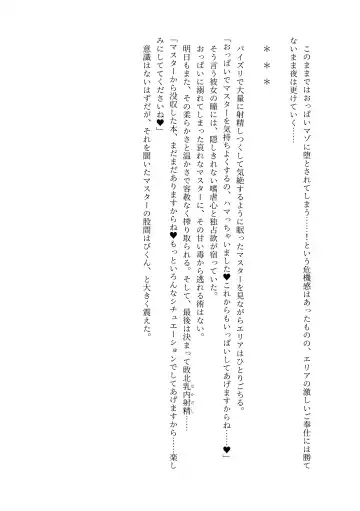 このままではおっぱいマゾに堕とされてしまう……！という危機感はあったものの、エリアの激しいご奉仕には勝て
ないまま夜は更けていく……
＊　＊　＊
パイズリで大量に射精しつくして気絶するように眠ったマスターを見ながらエリアはひとりごちる。
「おっぱいでマスターを気持ちよくするの、ハマっちゃいました♥これからもいっぱいしてあげますからね……♥」
そう言う彼女の瞳には、隠しきれない嗜虐心と独占欲が宿っていた。
おっぱいに溺れてしまった哀れなマスターに、その甘い毒から逃れる術はない。
明日もまた、その柔らかさと温かさで容赦なく搾り取られる。そして、最後は決まって敗北乳内射精……
「マスターから没収した本、まだまだありますからね♥もっといろんなシチュエーションでしてあげますから……楽し
みにしててくださいね♥」
意識はないはずだが、それを聞いたマスターの股間はぴくん、と大きく震えた。